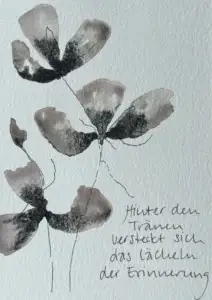 Hinter den
Tränen
versteckt sich
das Lächeln
der Erinnerung